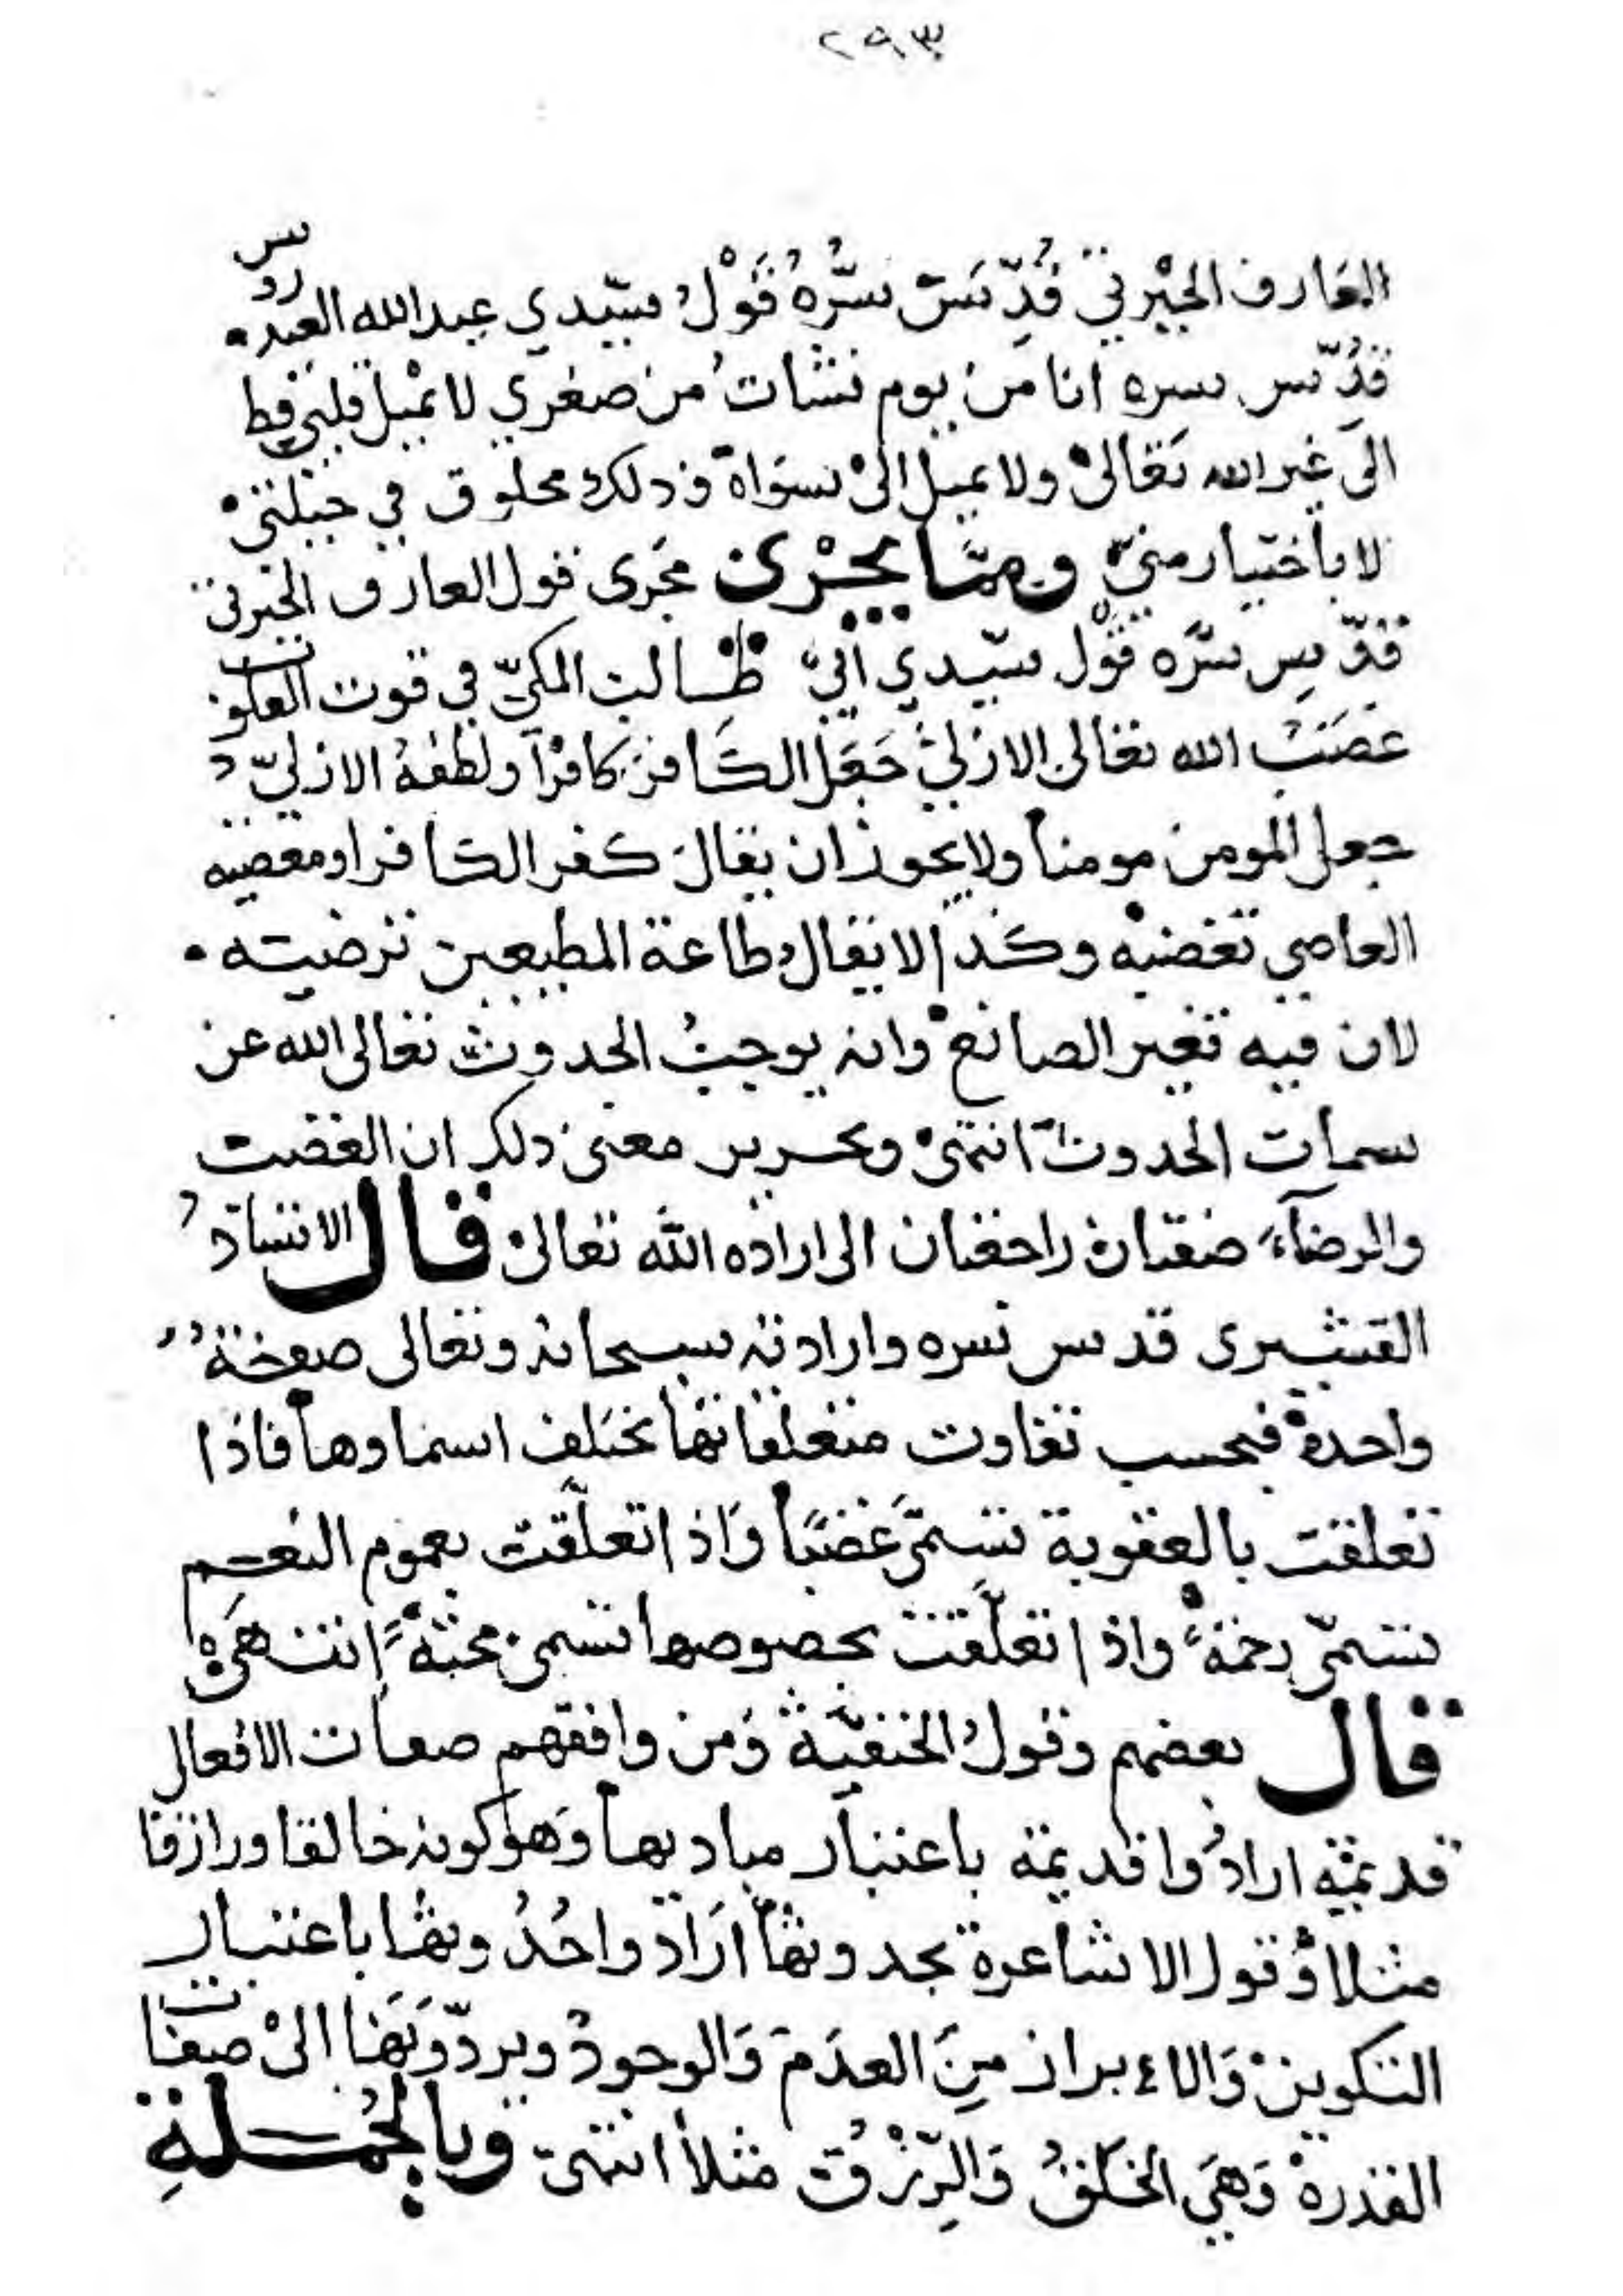 ٢٩٣
العارف الجبرتي قُدِّسَ سرُّهُ قَوْلُ سيّدي عبد الله العيدروس
قدّس سره انا من يوم نشات من صغري لا يميل قلبي قط
الى غير الله تعالى ولا يميل الى سواه وذلك مخلوق في جبلتي
لا باختيار مني وممّا يجْري مجرى قول العارف الجبرتي
قدّس سرّه قول سيّدي أبي طالب المكيّ في قوت القلوب
غضب الله تعالى الازليّ جَعَل الكافر كافرًا ولطفهُ الازليّ
جعل المومن مومنا ولا يجوز ان يقال كفر الكافر او معصيه
العاصي تغضبه وكذا لا يقال طاعة المطيعين ترضيته
لان فيه تغير الصانع وانه يوجب الحدوث تعالى الله عن
سمات الحدوث انتهى وتحرير معنى ذلك ان الغضب
والرضآء صفتان راجعتان الى اراده الله تعالى قال الاستاد
القشيرى قدس سره وارادته سبحانه وتعالى صفة
واحدة فبحسب تفاوت متعلقاتها تختلف اسماوها فاذا
تعلقت بالعقوبة تسمّى غضبًا واذا تعلّقت بعموم النعم
تسمّى رحمة واذا تعلّقت بخصوصها تسمى محبّةً انتهى
قال بعضهم وقول الحنفيّة ومن وافقهم صفات الافعال
قديمة ارادوا قديمة باعتبار مباديها وهو كونه خالقا ورازقا
مثلا وقول الاشاعرة بحدوثها أراد واحُدُوثها باعتبار
التكوين والاءبراز مِنَ العدَم وَالوجود ويردّونَها الى صفات
القدرة وَهيَ الخلقُ وَالرِّزْق مثلا انتهى وبالجُملةِ